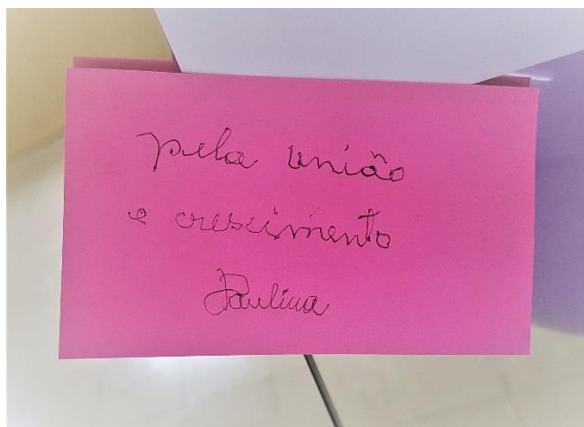 pela união
e crescimento
Paulina